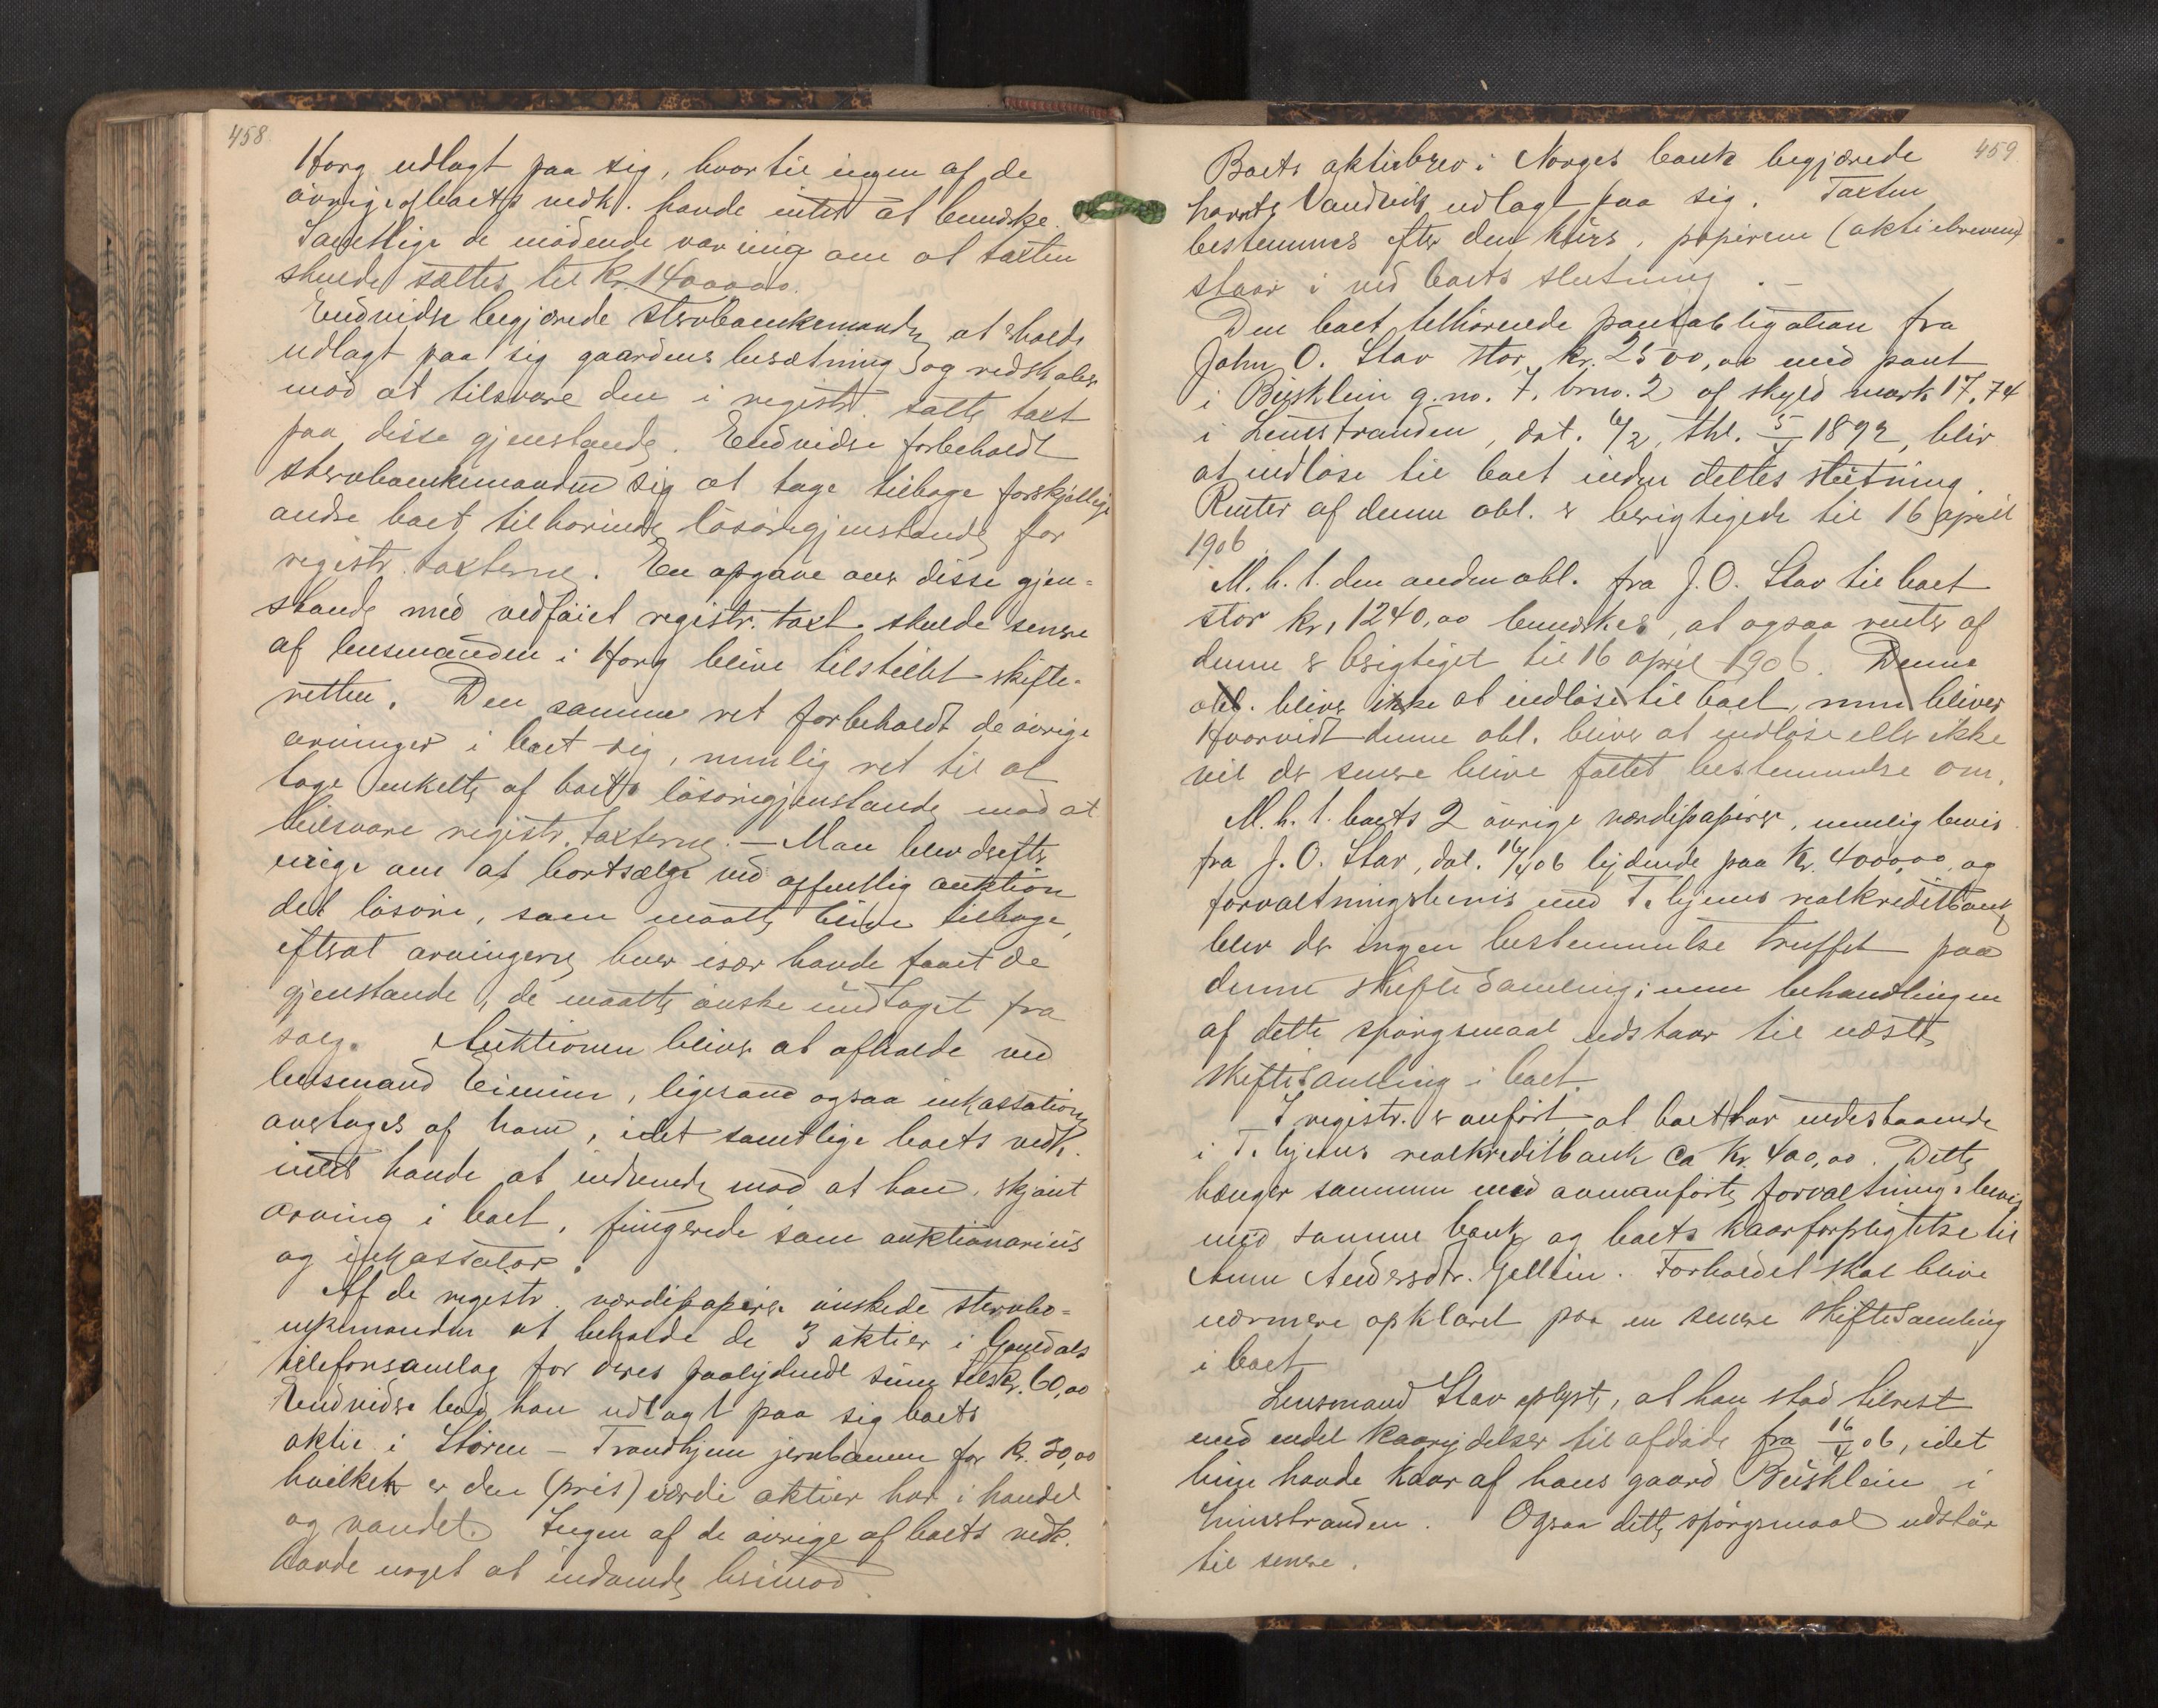 458
Horg udlagt paa sig, hvortil ingen af de
övrige af boets vedk. havde intet at bemerke.
Samtlige de mödende var enig om at taxten
skulde sættes til kr. 14000,00.
Endvidere begjærede stervboenkemanden at beholde
udlagt paa sig gaardens besætning og redskaber
mod at tilsvare den i registr. satte taxt
paa disse gjenstande. Endvidere forbeholdt
stervboenkemanden sig at tage tilbage forskjellige
andre boet tilhörende lösöregjenstande for
registr. taxterne. En opgave over disse gjen-
stande med vedföiet registr. taxt skulde senere
af lensmanden i Horg blive tilstillet skifte-
retten. Den samme ret forbeholdt de övrige
arvinger i boet sig, nemlig ret til at
tage enkelte af boets lösöregjenstande mod at
tilsvare registr. taxterne. — Man blev derefter
enige om at bortsælge ved offentlig auktion
det lösöre, som maatte blive tilbage,
efterat arvingerne hver især havde faaet de
gjenstande, de maatte önske undtaget fra
salg. Auktionen bliver at afholde ved
lensmand Eimin, ligesom ogsaa inkassationen
overtages af ham, idet samtlige boets vedk.
intet havde at indvende mod at han, skjönt
arving i boet, fungerede som auktionarius
og inkassator.
Af de registr. værdipapirer önskede stervbo-
enkemanden at beholde de 3 aktier i Guldals
telefonsamlag for deres paalydende sum tils. kr. 60,00
Endvidere bad han udlagt paa sig boets
aktie i Stören - Trondhjem jernbanen for kr. 30,00
hvilket er den (pris) værdi aktier har i handel
og vandel. Ingen af de övrige af boets vedk.
havde noget at indvende herimod.
459
Boets aktiebrev i Norges bank begjærede
Vandvik udlagt paa sig. Taxten
bestemmes efter den kurs, papirene (aktiebrevene)
staar i ved boets slutning. —
Den boet tilhörende pantobligation fra
John O. Stav stor kr. 2500,00 med pant
i Büsklein g.no. 7, brno. 2 af skyld mark 17,74
i Leinstranden, dat. 6/2, thl. 5/4 1892, blir
at indlöse til boet inden dettes slutning.
Renter af denne obl. er berigtigede til 16 april
1906
M. h. t. den anden obl. fra J. O. Stav til boet
stor kr. 1240,00 bemerkes, at ogsaa renter af
denne er berigtiget til 16 april 1906. Denne
obl. bliver ikke at indlöse til boet, men bliver
Hvorvidt denne obl. bliver at indlöse eller ikke
vil der senere blive fattet bestemmelse om.
M. h. t. boets 2 övrige værdipapirer, nemlig bevis
fra J. O. Stav, dat. 16/4 06 lydende paa kr. 4000,00, og
forvaltningsbevis med T.hjems realkreditbank
blev der ingen bestemmelse truffet paa
denne skiftesamling; men behandlingen
af dette spörgsmaal udstaar til næste
skiftesamling i boet.
I registr. er anfört, at boet har indestaaende
i T.hjems realkreditbank ca kr. 400,00. Dette
hænger sammen med ovenanförte forvaltningsbevis
med samme bank og boets kaarforpligtelse til
Anne Andersdtr. Gellein. Forholdet skal blive
nærmere opklaret paa en senere skiftesamling
i boet
Lensmand Stav oplyste, at han stod tilrest
med endel kaarydelser til afdöde fra 16/4 06, idet
hun havde kaar af hans gaard Büsklein i
Leinstranden. Ogsaa dette spörgsmaal udstår
til senere.